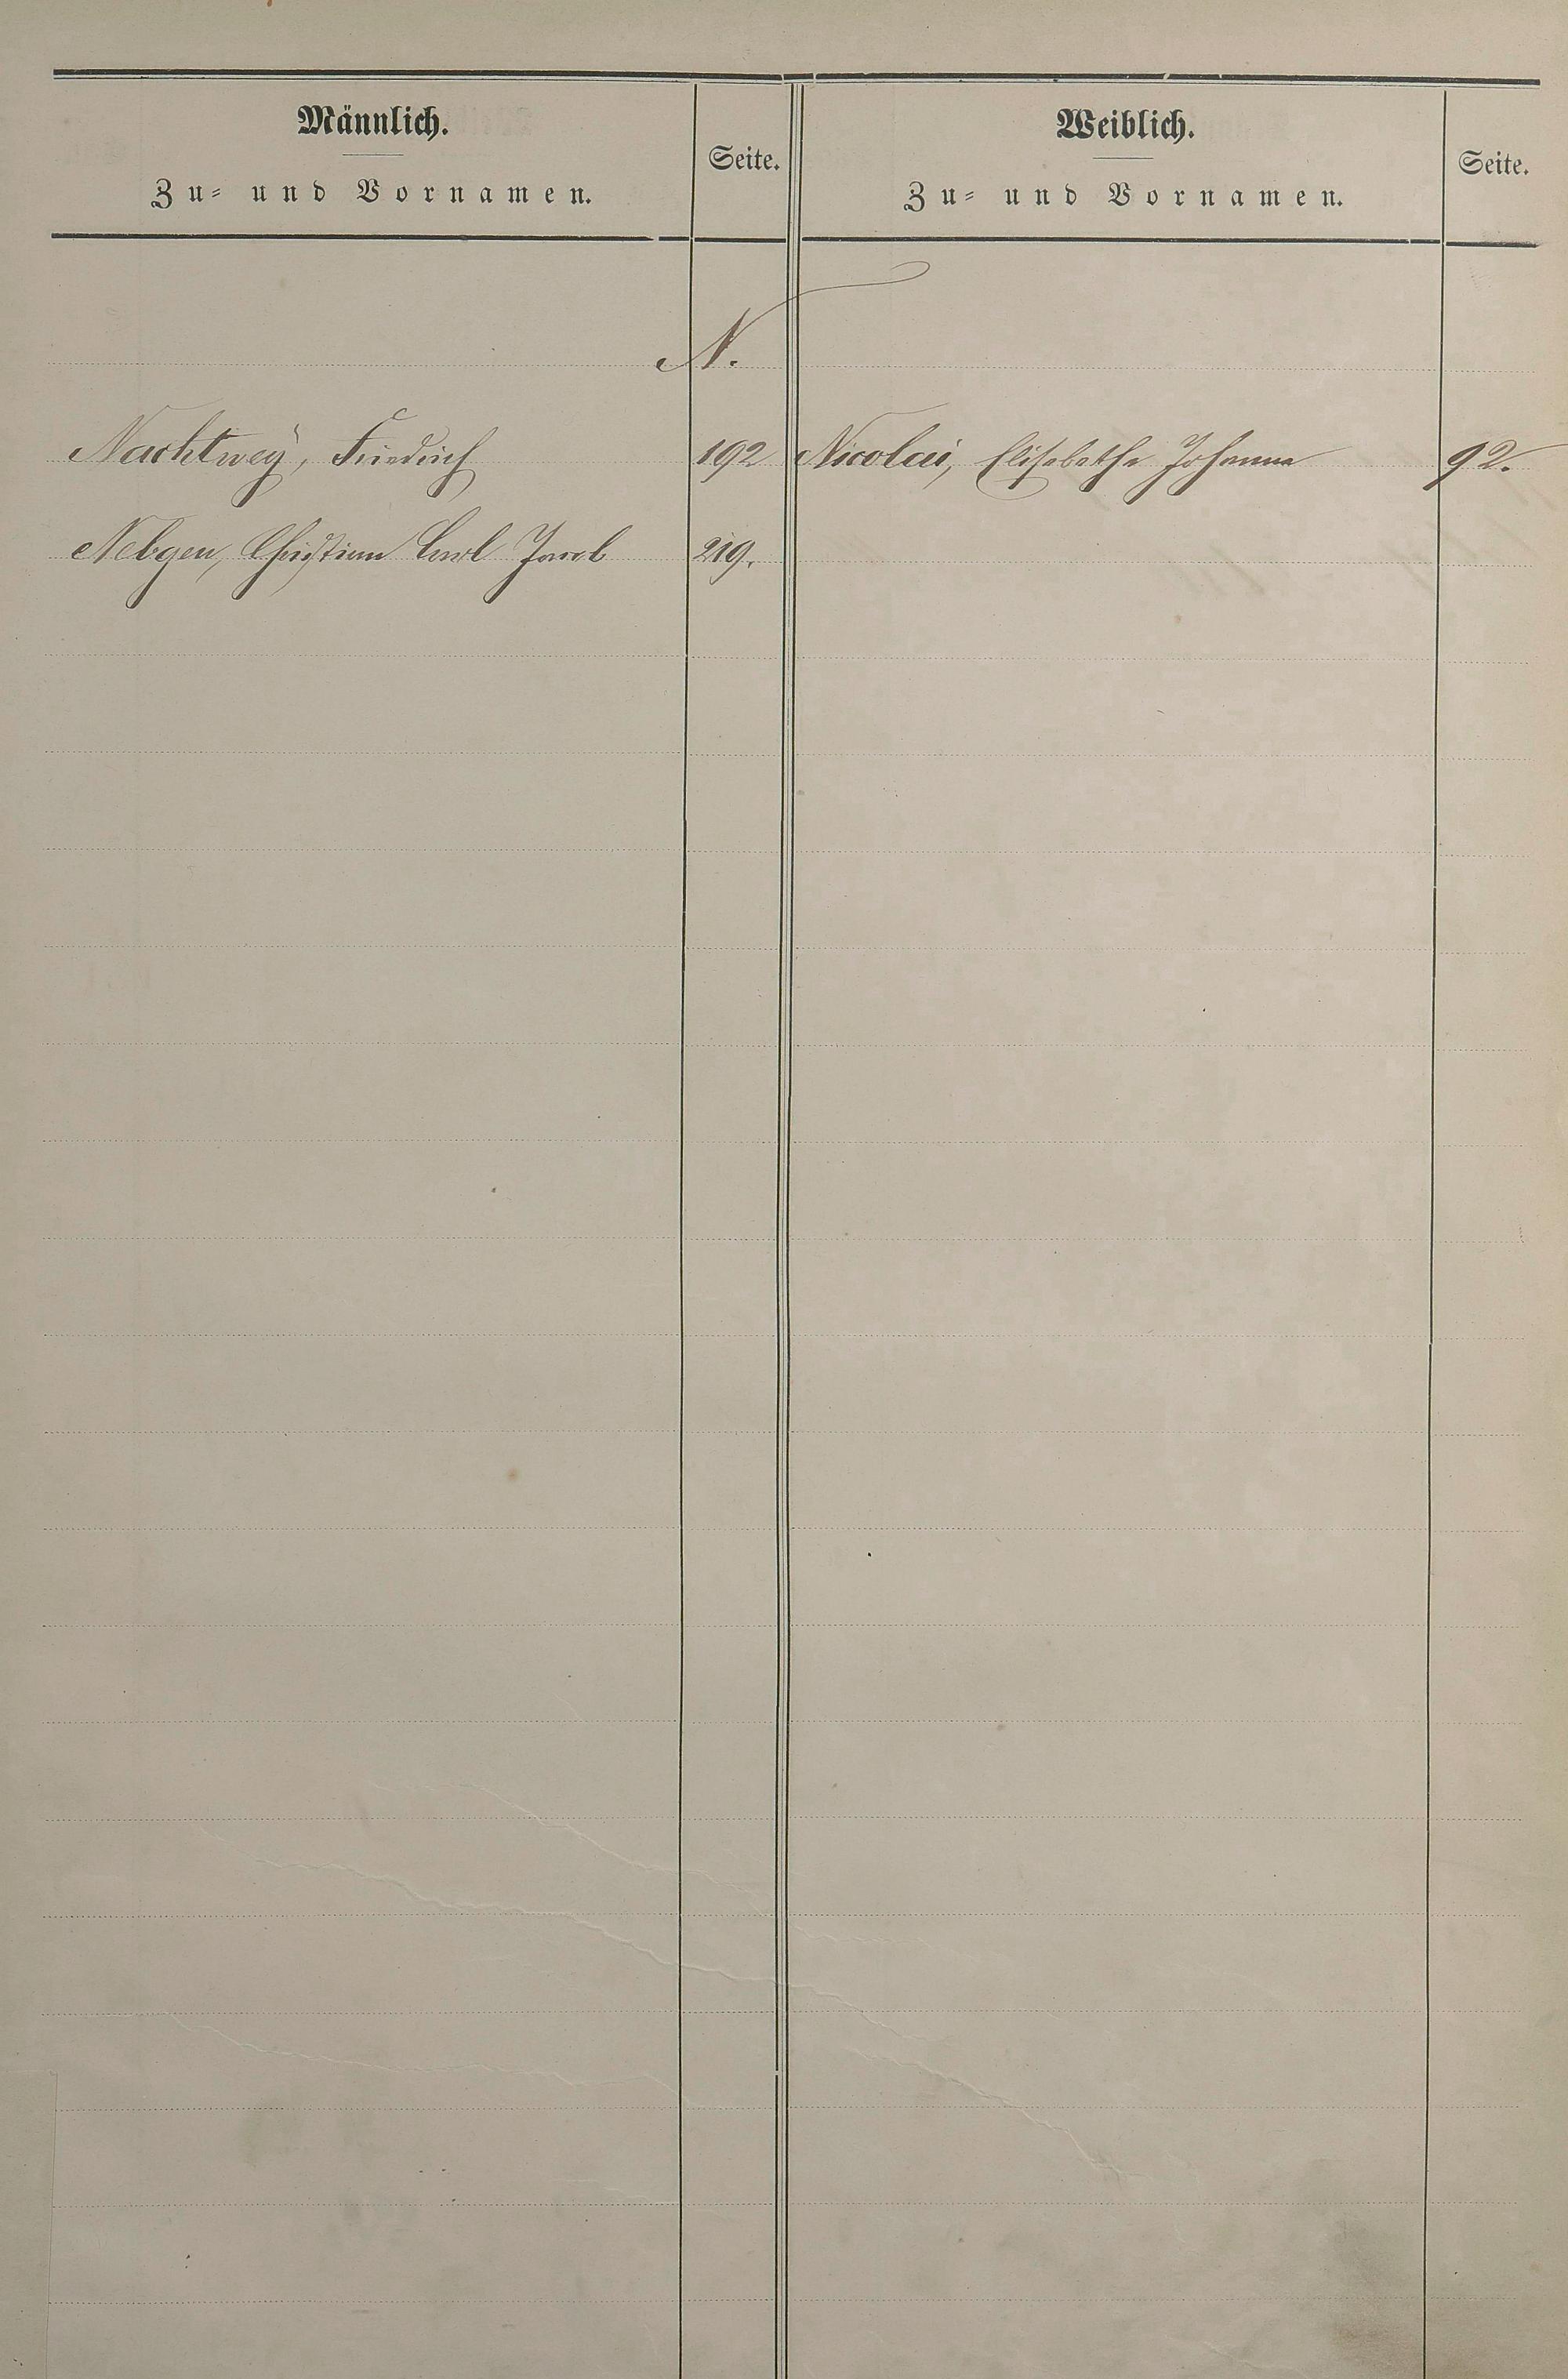 Männlich.
Zu- und Vornamen.
Seite.
Weiblich.
Zu- und Vornamen.
Seite.
N.
Nachtwey, Friedrich 192 Nicolai, Elisabethe Johanna 92.
Nebgen, Christian Carl Jacob 219.